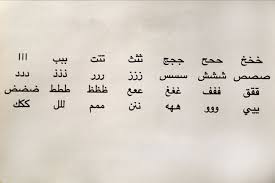 ااا ببب تتت ثثث ججج ححح خخخ
ددد ذذذ ررر ززز سسس ششش صصص
ضضض ططط ظظظ ععع غغغ ففف ققق
ككك للل ممم ننن ههه ووو ييي